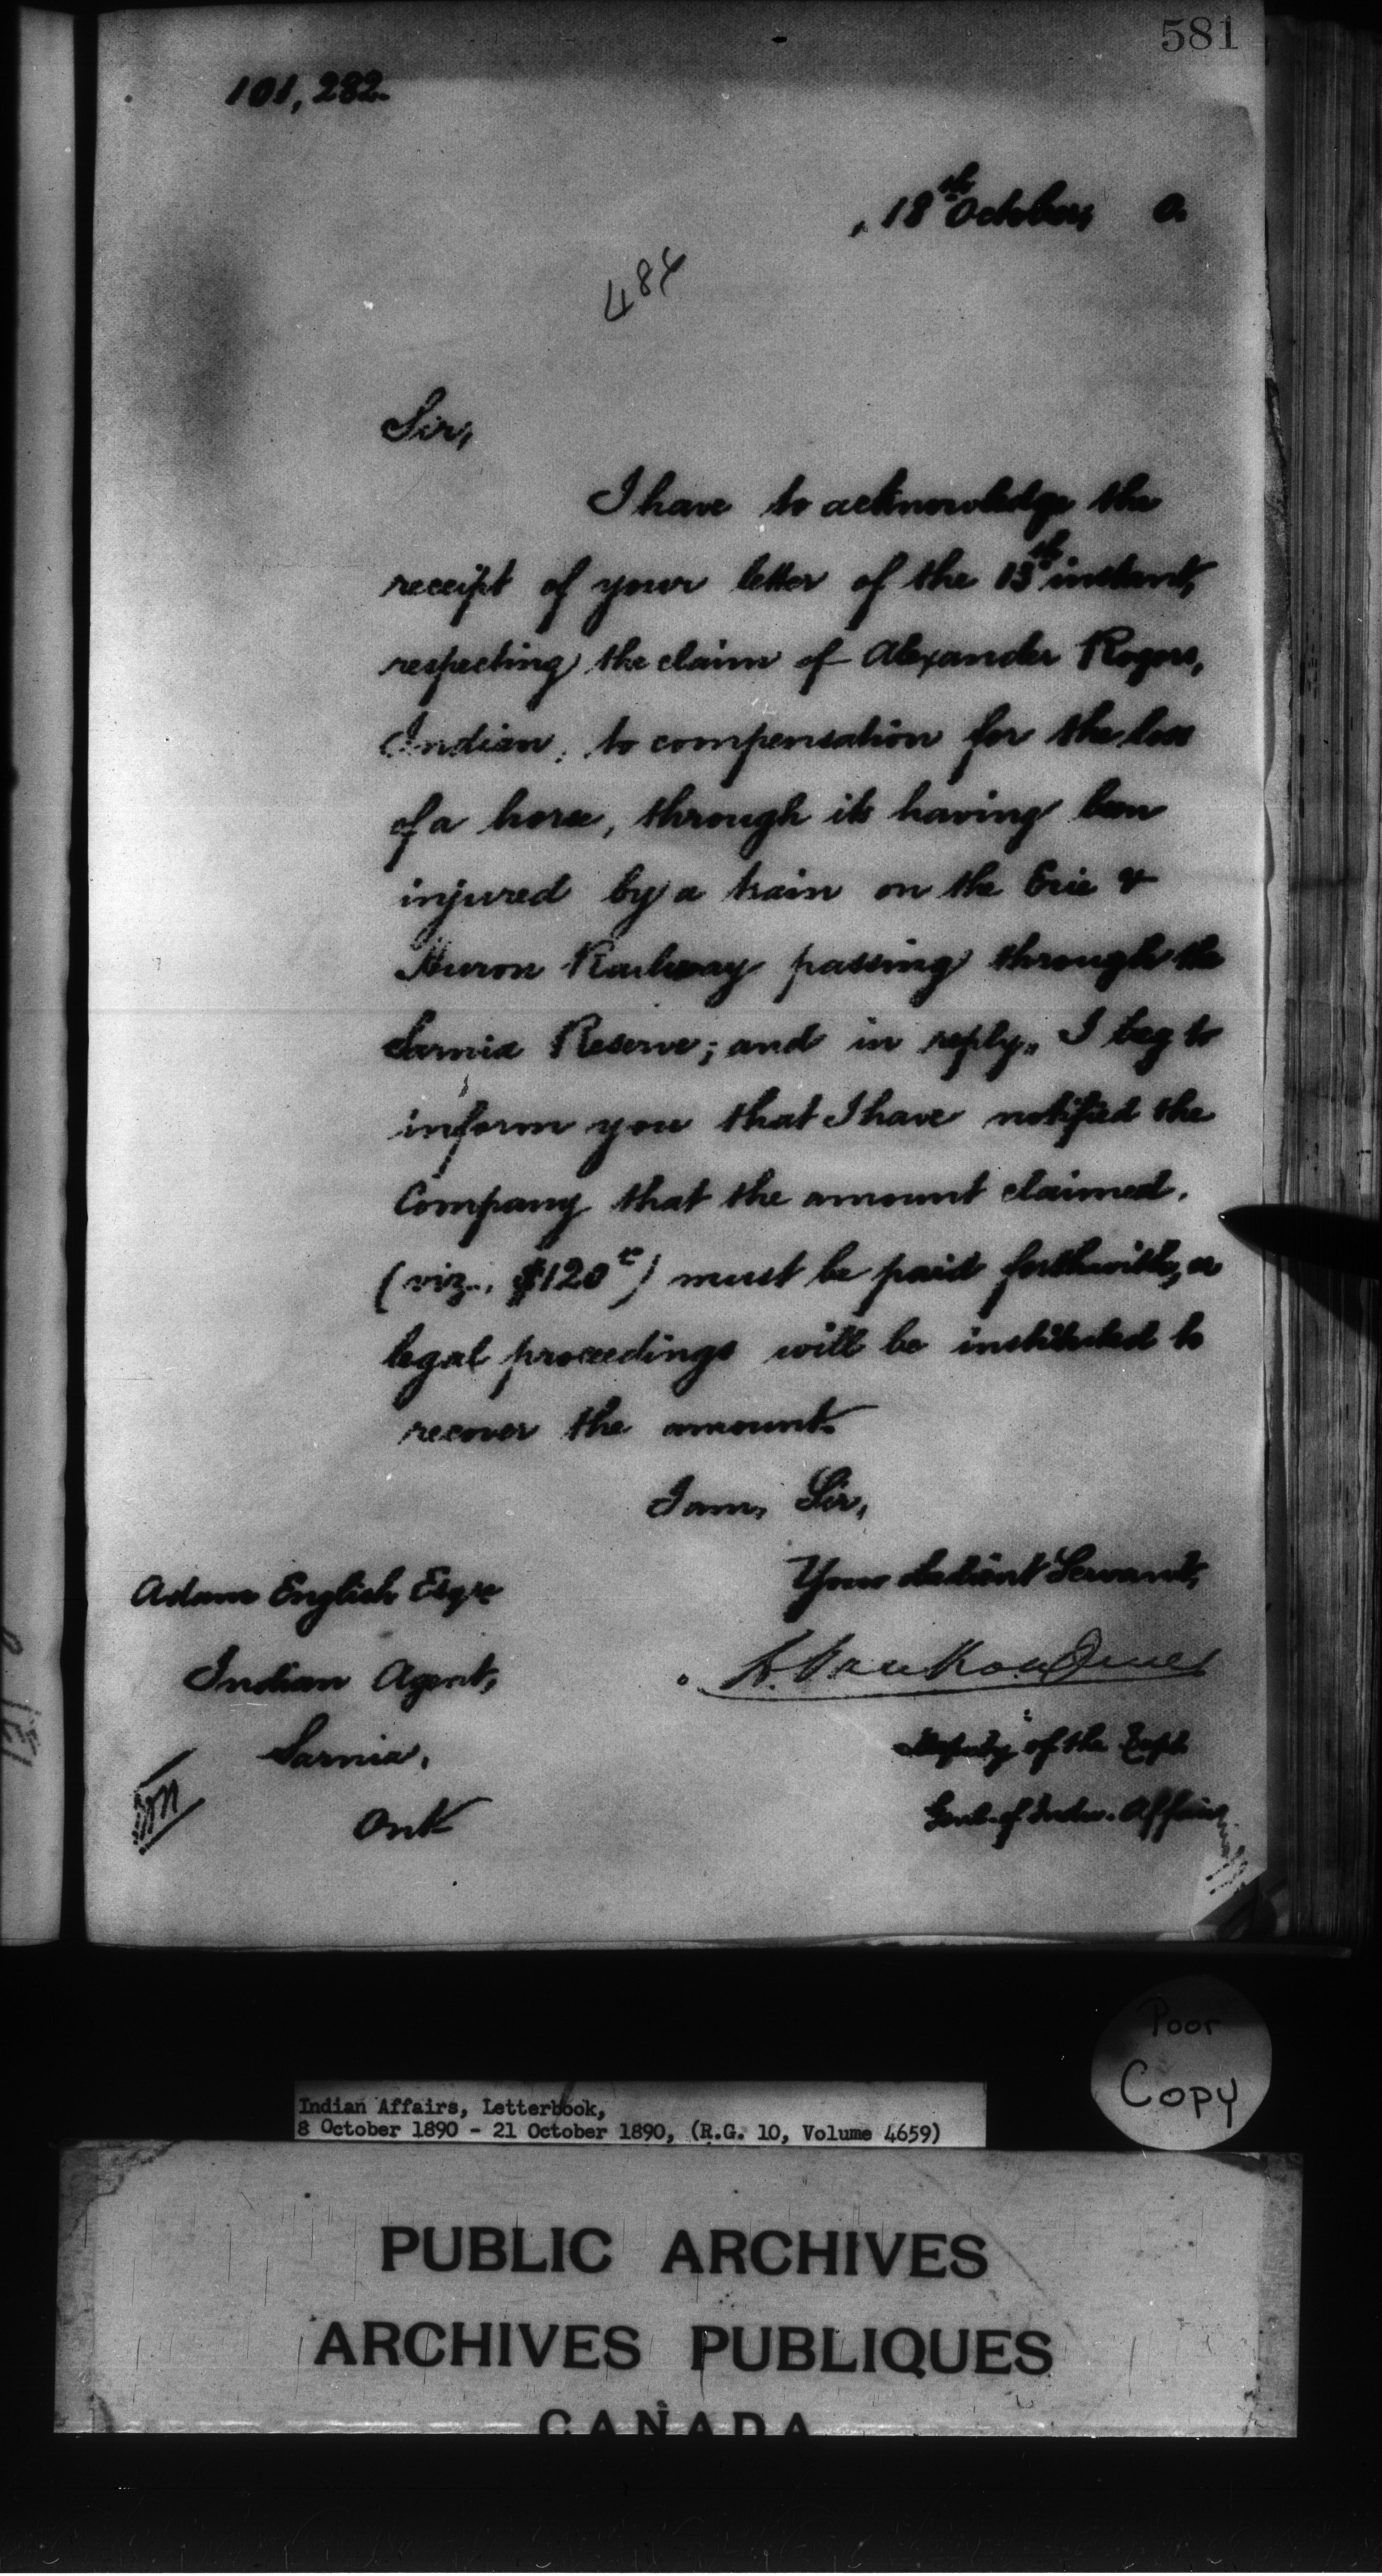 581
101,282.
18th October, 0.
Sir,
I have to acknowledge the
receipt of your letter of the 13th instant,
respecting the claim of Alexander Rogers,
Indian, to compensation for the loss
of a horse, through its having been
injured by a train on the Erie &
Huron Railway passing through the
Sarnia Reserve; and in reply, I beg to
inform you that I have notified the
Company that the amount claimed,
(viz., $120) must be paid forthwith, or
legal proceedings will be instituted to
recover the amount.
I am, Sir,
Your obedient Servant,
Adam English Esqre
L. VanKoughnet
Indian Agent,
Deputy of the Supt.
Sarnia,
Genl. of Indn. Affairs
Ont
Poor
Copy
Indian Affairs, Letterbook,
8 October 1890 - 21 October 1890, (R.G. 10, Volume 4659)
PUBLIC ARCHIVES
ARCHIVES PUBLIQUES
CANADA